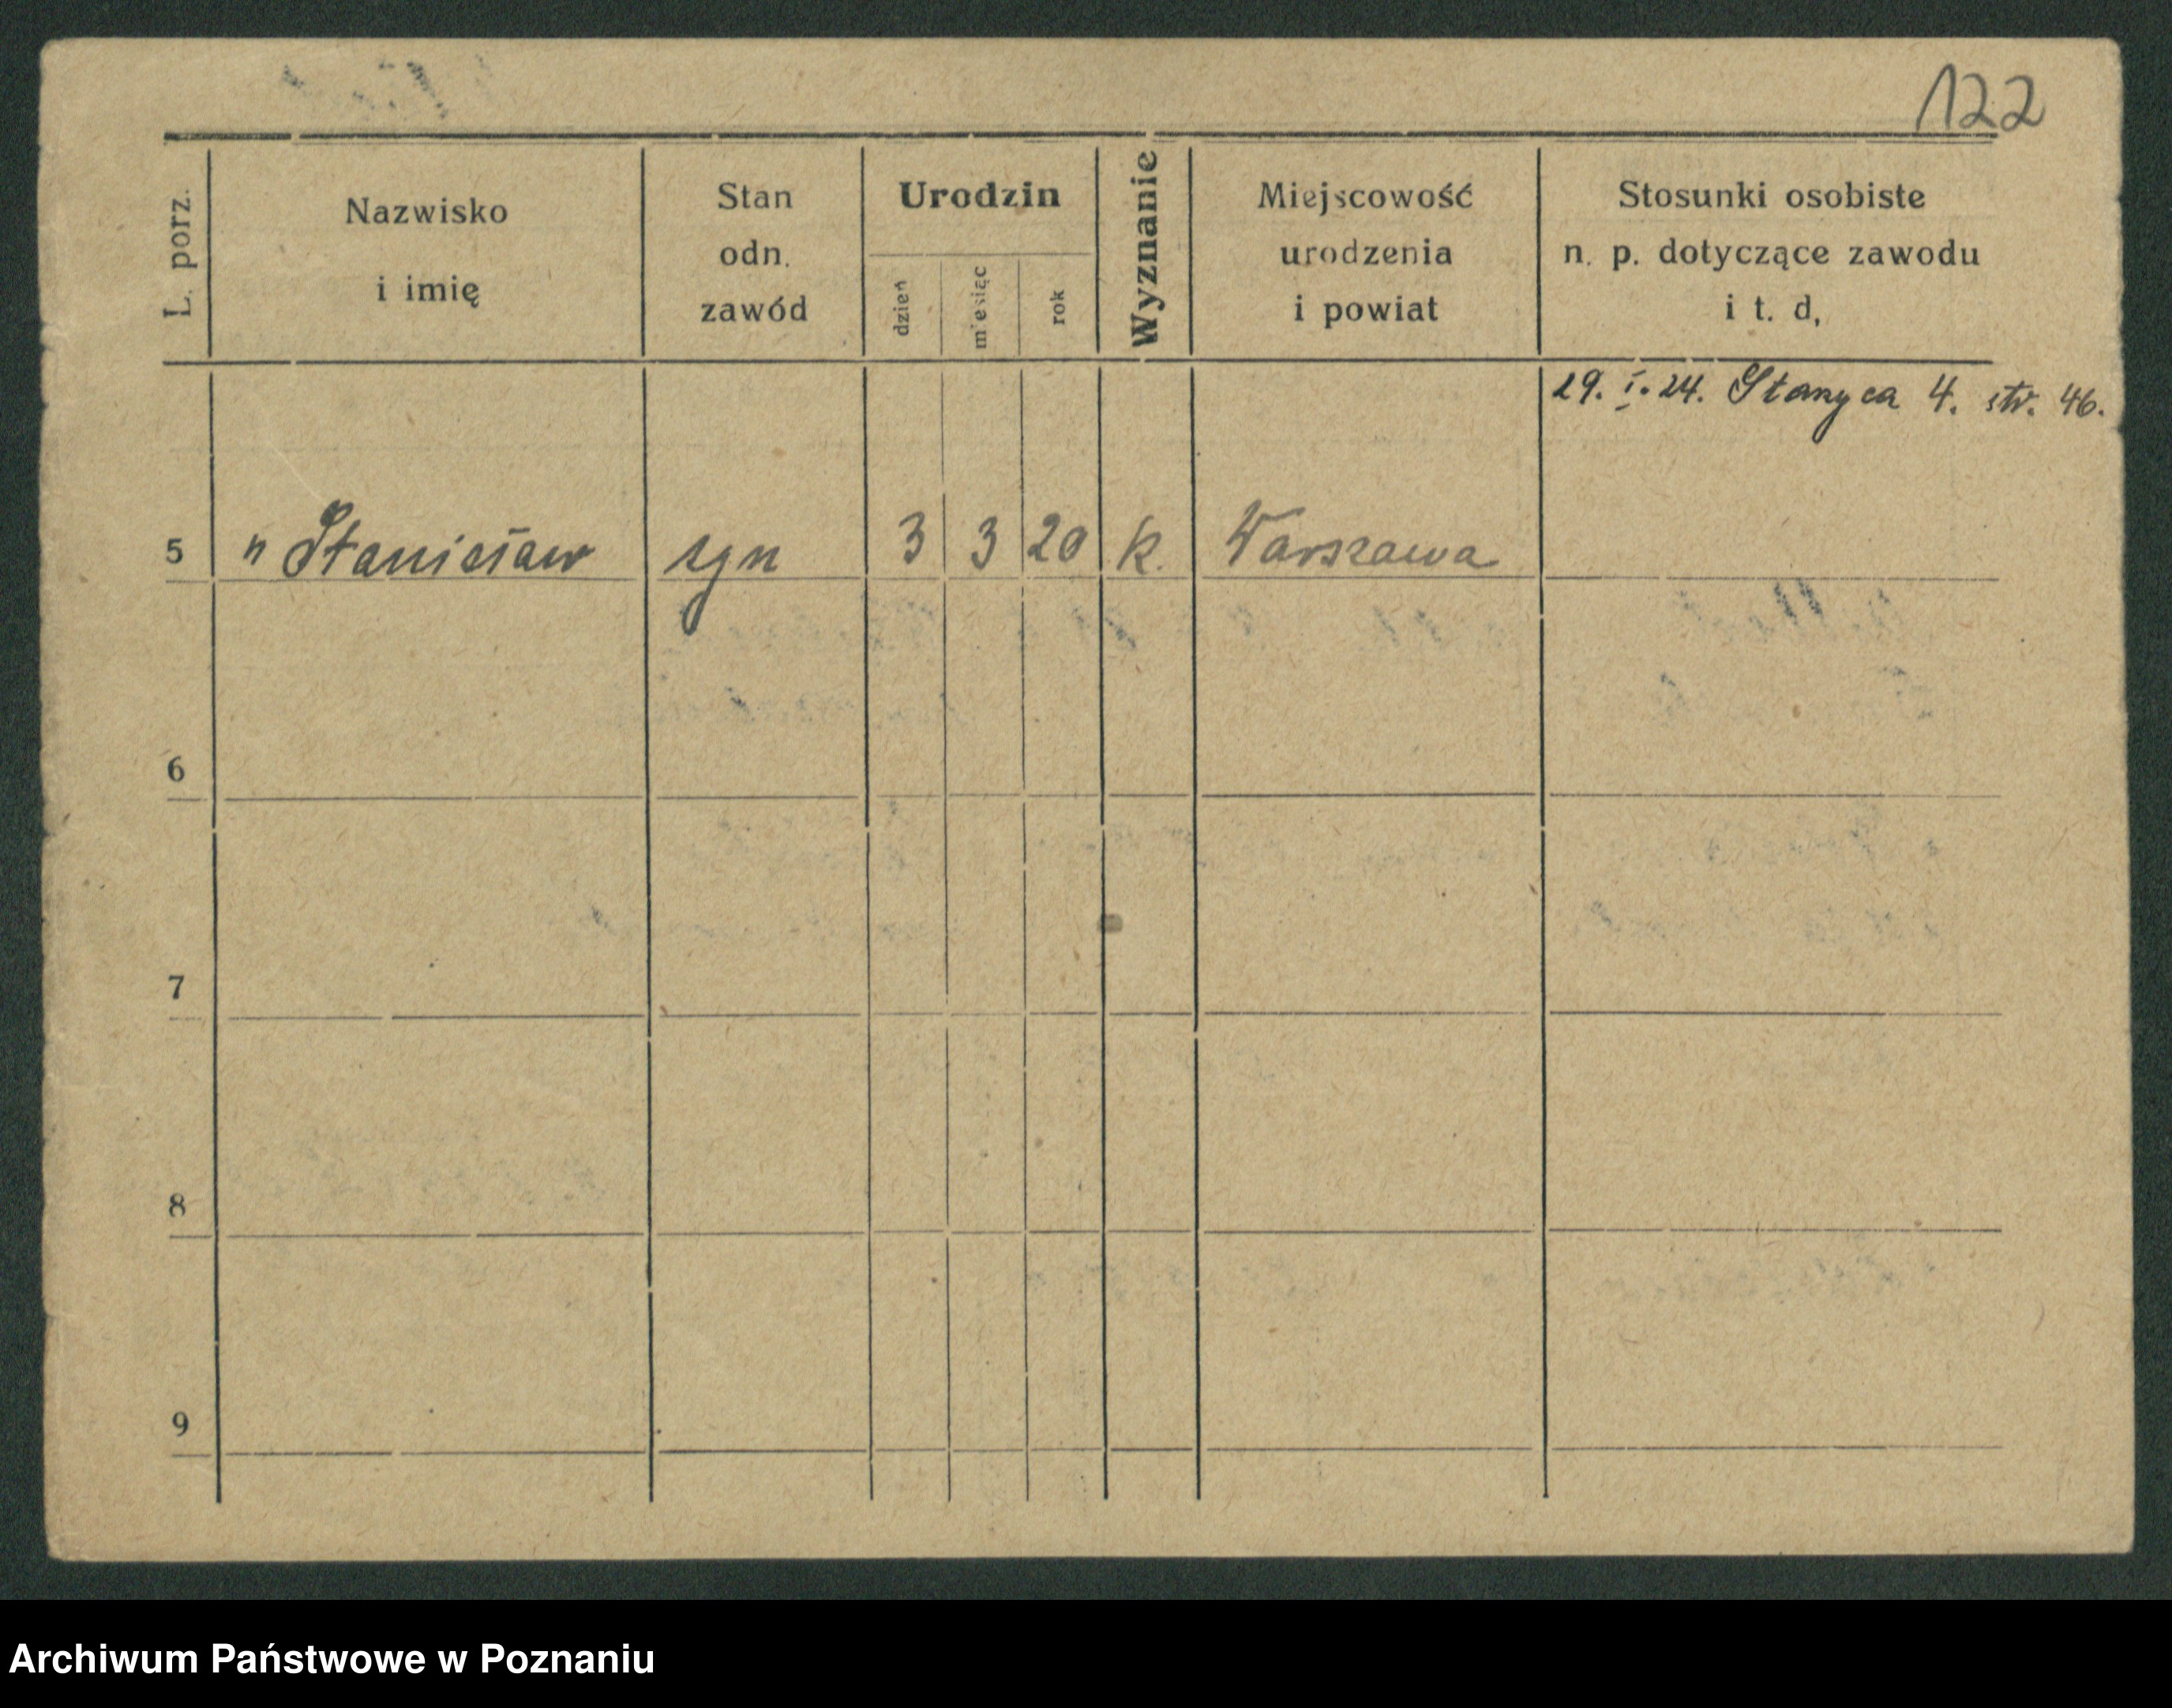 122
L. porz.
Nazwisko
i imię
Stan
odn.
zawód
Urodzin
dzień
miesiąc
rok
Wyznanie
Miejscowość
urodzenia
i powiat
Stosunki osobiste
n. p. dotyczące zawodu
i t. d,
29. I. 24. 4. str. 46.
5 " Stanisław syn 3 3 20 k. Warszawa
6
7
8
9
Archiwum Państwowe w Poznaniu